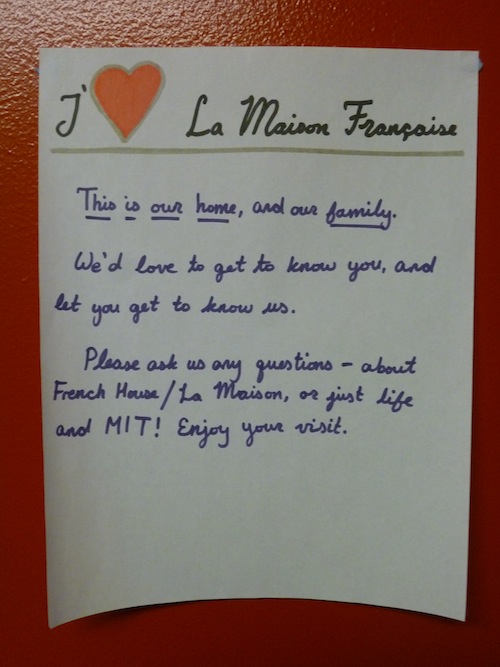 J' La Maison Française
This is our home, and our family.
We'd love to get to know you, and
let you get to know us.
Please ask us any questions - about
French House/La Maison, or just life
and MIT! Enjoy your visit.